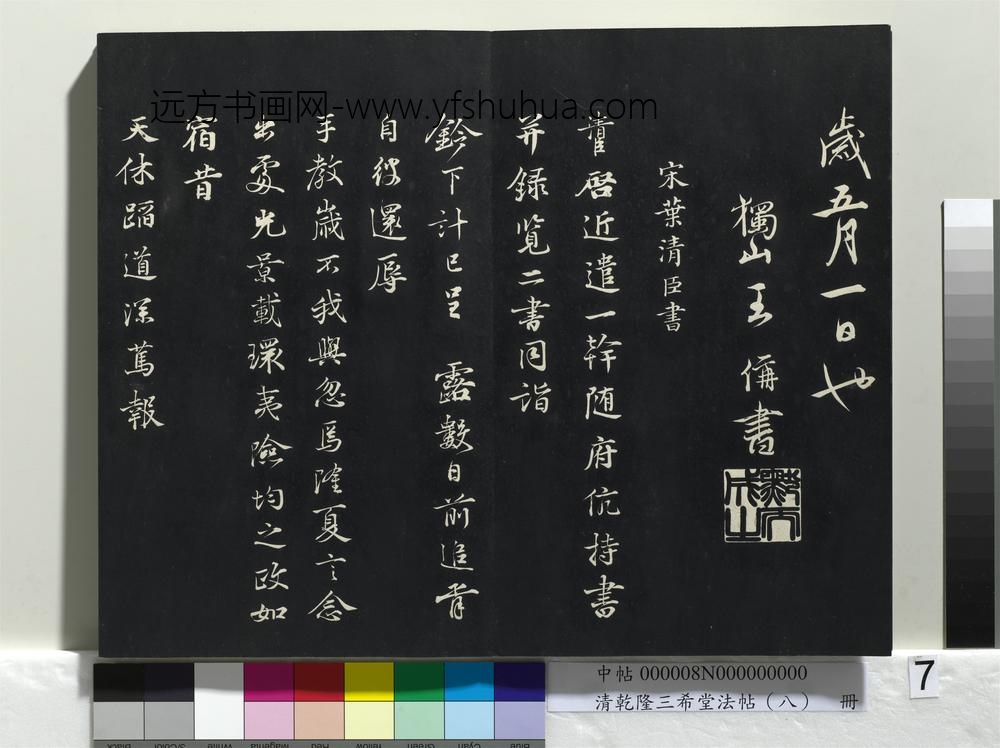 歲五月一日也
獨山王偁書
宋葉清臣書
啓近遣一幹随府伉持書
并録覽二書同詣
鈴下計已呈 露數日前追胥
自彼還辱
手教歲不我與忽焉隆夏言念
出處光景載環夷險均之政如
宿昔
天休蹈道深篤報
远方书画网-www.yfshuhua.com
中帖 000008N000000000
清乾隆三希堂法帖（八） 冊
7
Black
3/Color
White
Magenta
Red
Yellow
Green
Cyan
Blue